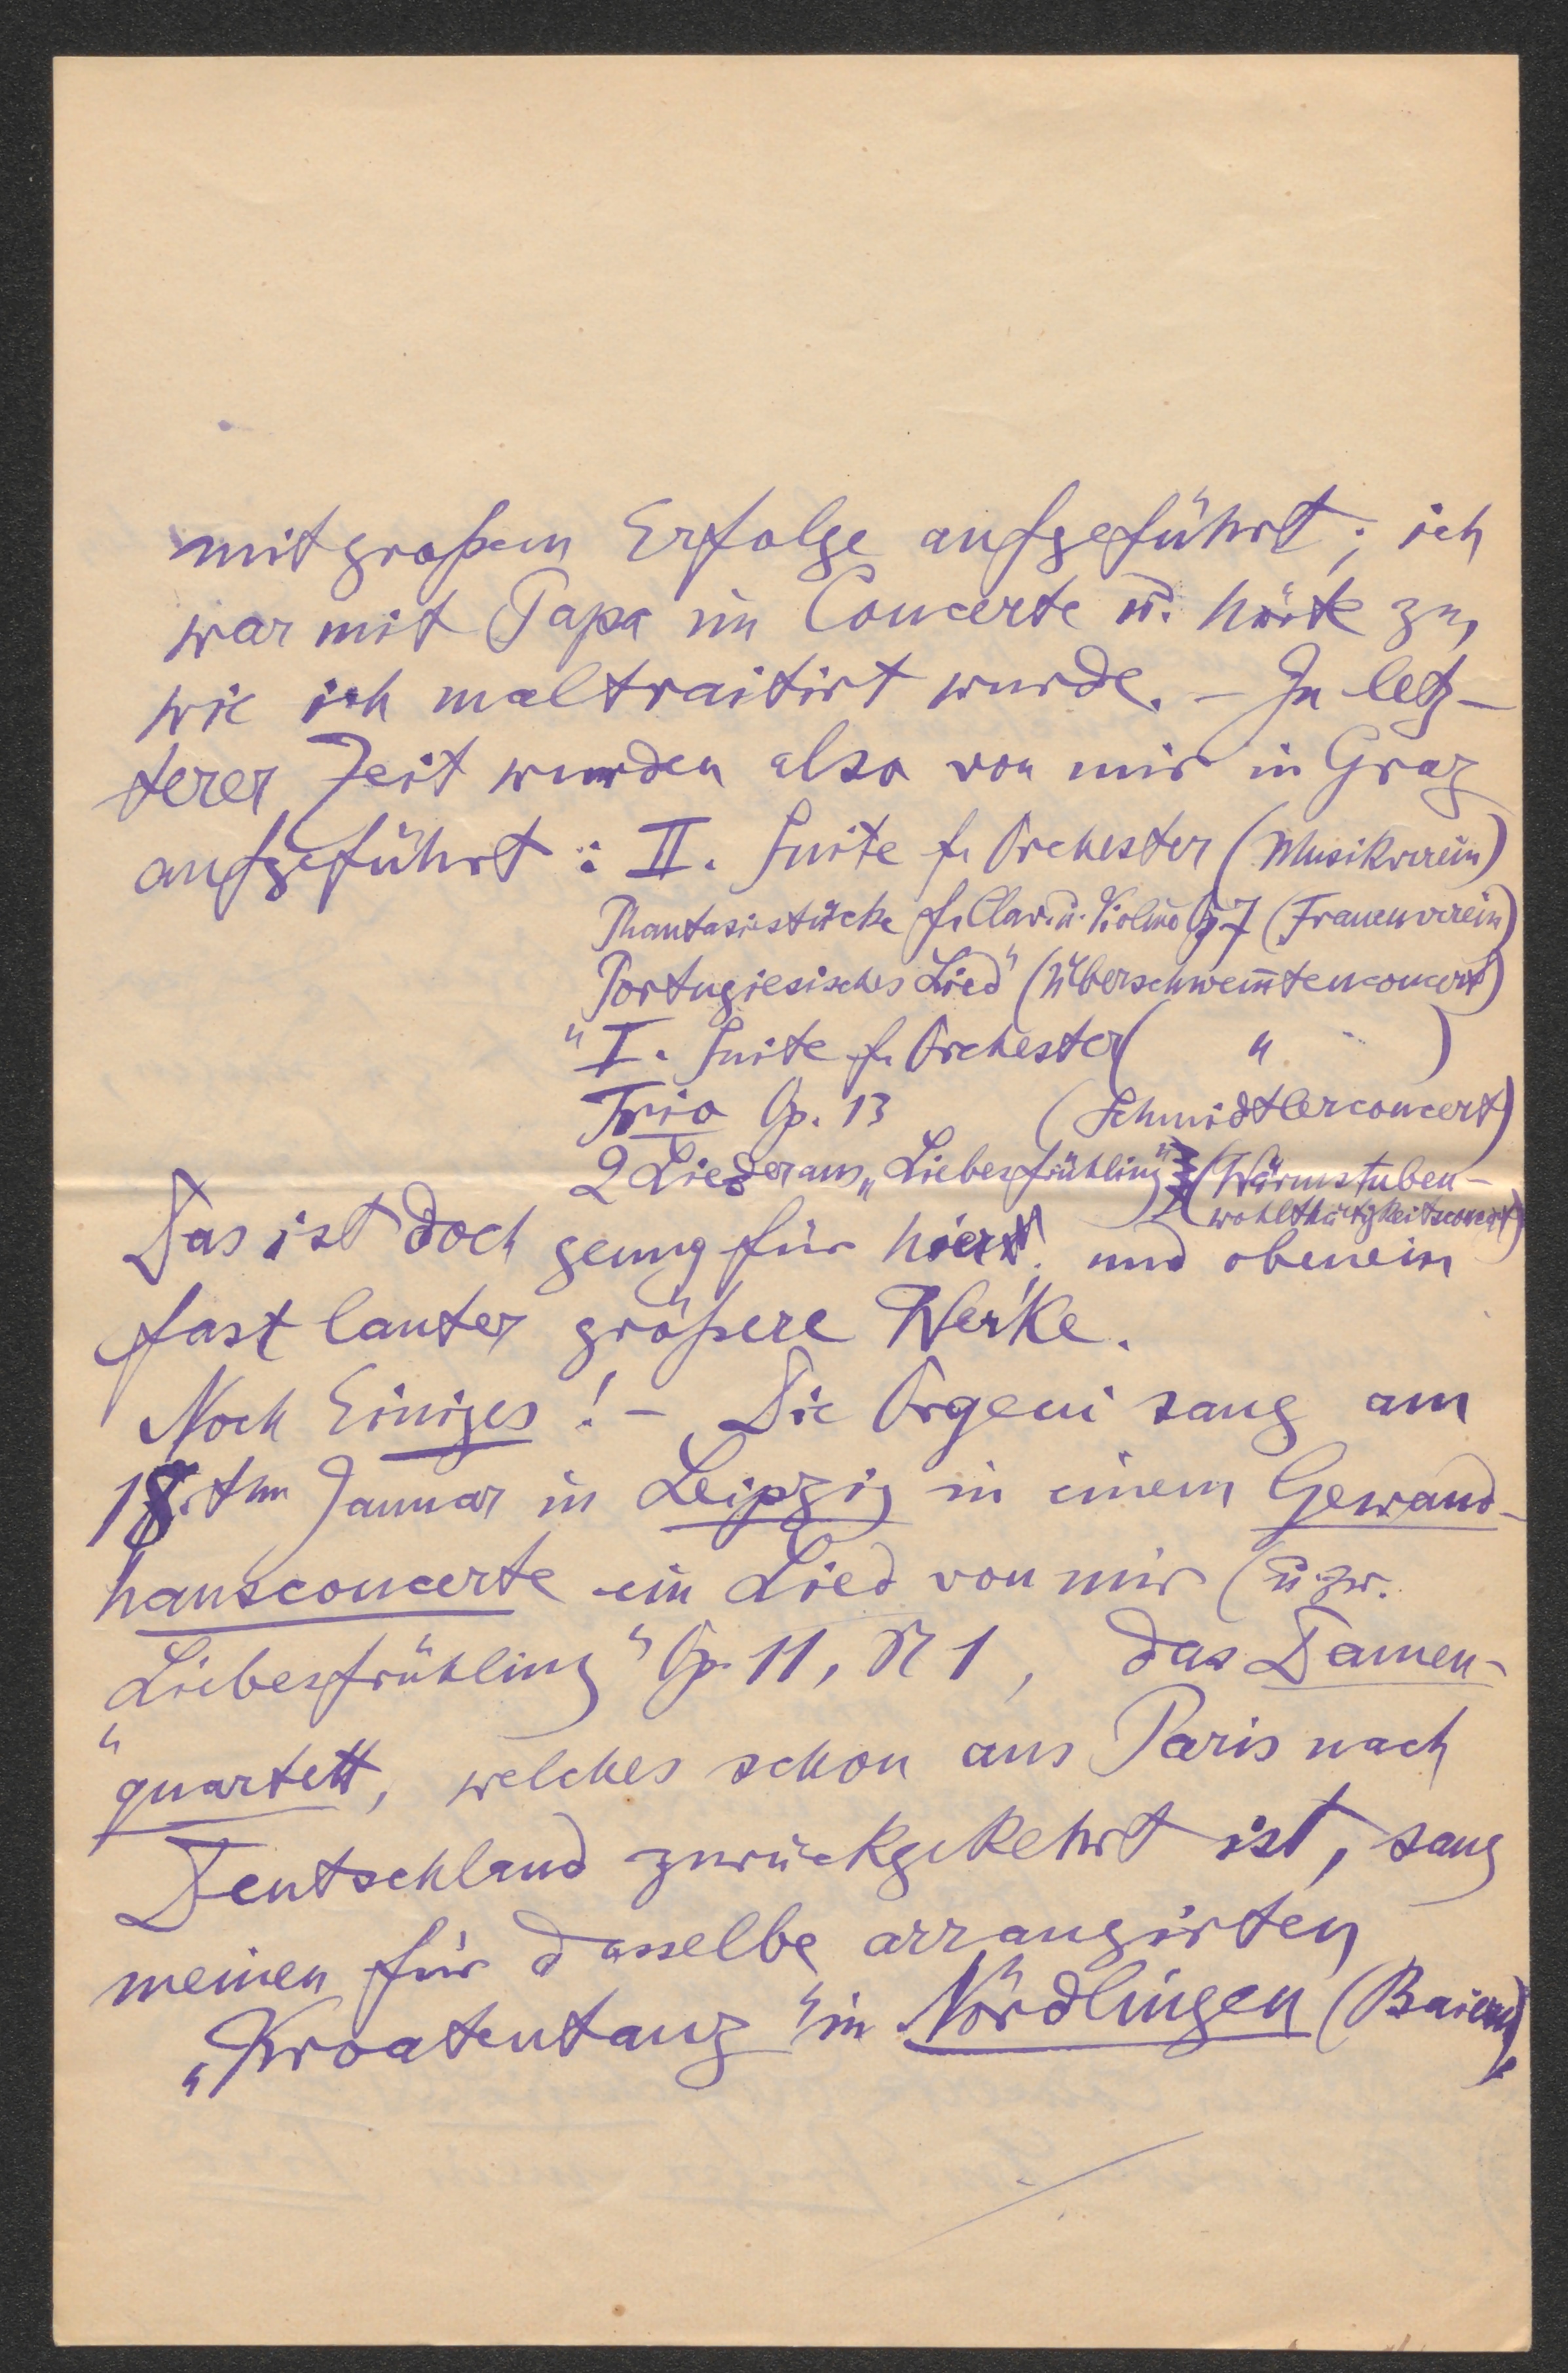 mit großem Erfolge aufgeführt; ich
war mit Papa im Concerte u. hörte zu,
wie ich maltraitirt wurde. – In letz-
terer Zeit wurden also von mir in Graz
aufgeführt: II. Suite f. Orchester (Musikverein)
Phantasiestücke f. Clav. u. Violine Op. 7 (Frauenverein)
„Portugiesisches Lied" (Überschwem̄tenconcert)
I. Suite f. Orchester ( " )
Trio Op. 13 (Schmidtlerconcert)
2 Lieder aus „Liebesfrühling" (Wärmstuben-
wohlthätigkeitsconcert)
Das ist doch genug für hier! und obenein
fast lauter größere Werke.
Noch Einiges! – Die Orgeni sang am
18.ten Januar in Leipzig in einem Gewand-
hausconcerte ein Lied von mir (u. zw.
„Liebesfrühling" Op. 11, N 1, das Damen-
quartett, welches schon aus Paris nach
Deutschland zurückgekehrt ist, sang
meinen für dasselbe arrangirten
„Kroatentanz" in Nördlingen (Baiern).